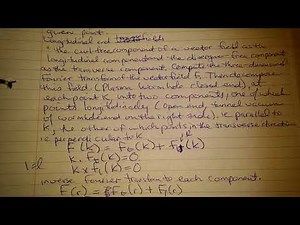 given point.
Longitudinal and fields
• the curl-free component of a vector field as the
longitudinal component and the divergence-free component
as the transverse component. Compute the three-dimensional
Fourier transform of the vector field F. Then decompose
this field (Plasma Wormhole closed end), at
each point K, into two components, one of which
points longitudinally (open end, tunnel vacuum
of wormhole end on the right side), i.e. parallel to
K, the other of which points in the transverse direction,
i.e. perpendicular to K
F (K) = Ft(K) + Fl(K)
K. Ft(K)=0
K x Fl(K)=0
inverse Fourier transform to each component.
F(r) = Ft(r) + Fl(r)